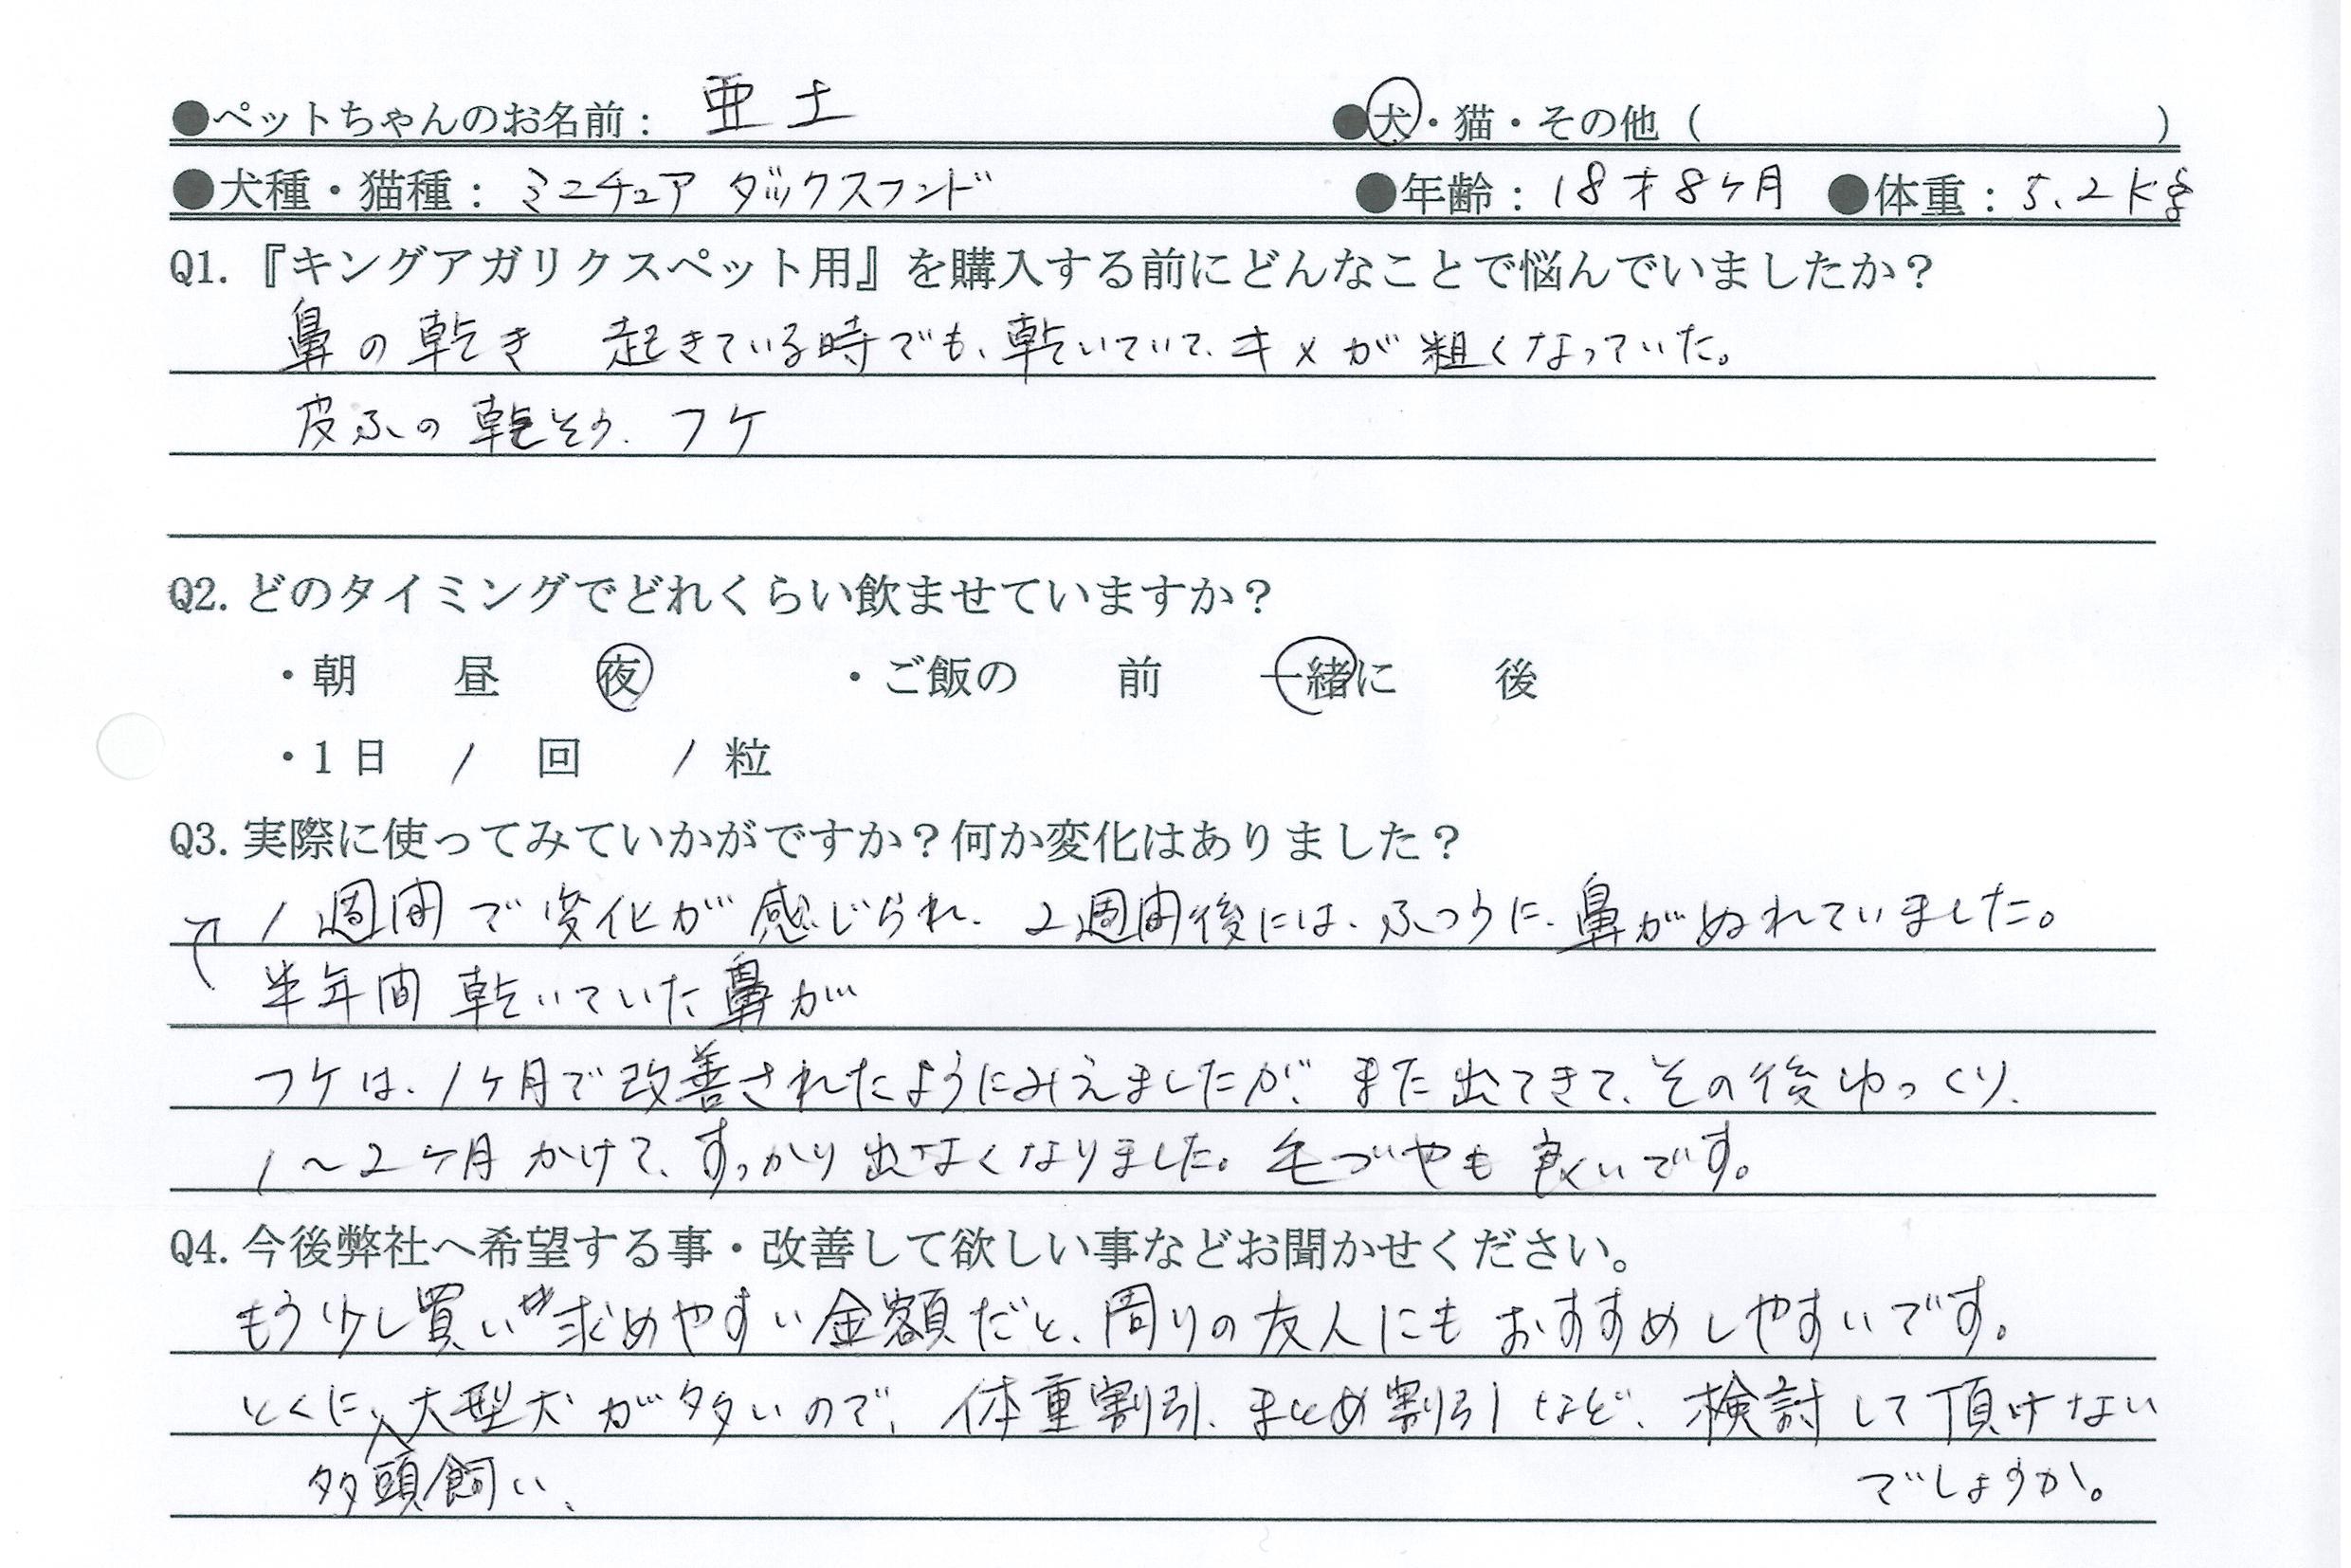 ●ペットちゃんのお名前： 亜土 ●犬・猫・その他（ ）
●犬種・猫種：ミニチュア ダックスフンド ●年齢：18才8ヶ月 ●体重：5.2kg
Q1.『キングアガリクスペット用』を購入する前にどんなことで悩んでいましたか？
鼻の乾き 起きている時でも、乾いていて、キメが粗くなっていた。
皮ふの乾そう、フケ
Q2.どのタイミングでどれくらい飲ませていますか？
・朝 昼 夜 ・ご飯の 前 一緒に 後
・1日 1 回 1 粒
Q3.実際に使ってみていかがですか？何か変化はありました？
1週間で変化が感じられ、2週間後には、ふつうに、鼻がぬれていました。
半年間乾いていた鼻が
フケは、1ヶ月で改善されたようにみえましたが、また出てきて、その後ゆっくり、
1〜2ヶ月かけて、すっかり出なくなりました。毛づやも良いです。
Q4.今後弊社へ希望する事・改善して欲しい事などお聞かせください。
もう少し買い求めやすい金額だと、周りの友人にもおすすめしやすいです。
とくに大型犬が多いので、体重割引、まとめ割引など、検討して頂けない
多頭飼い、 でしょうか。